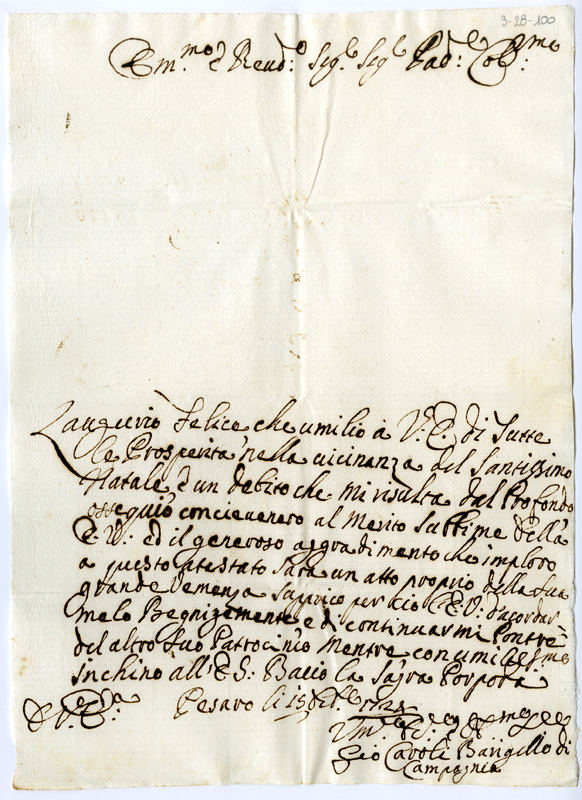 3-28-100
Em.mo e Reud.o Sig.e Sig.e Pad.e Col.mo
L'augurio Felice che umilio à V. E. di Tutte
le Prosperità nella uicinanza del Santissimo
Natale, è un debito che mi risulta dal Profondo
ossequio con cie uenero al Merito Sublime della
E. V. ed il generoso aggradimento che imploro
a questo atestato sarà un atto proprio della sua
grande Clemenza Suprico per ciò l'E. V. d'acordar
melo Begnigemente e di continuarmi
del altro suo Patrocinio Mentre con
inchino all' E. S. Bacio la sagra Porpora
Pesaro li 15
Gio Caroli Barigello di
Campagnia